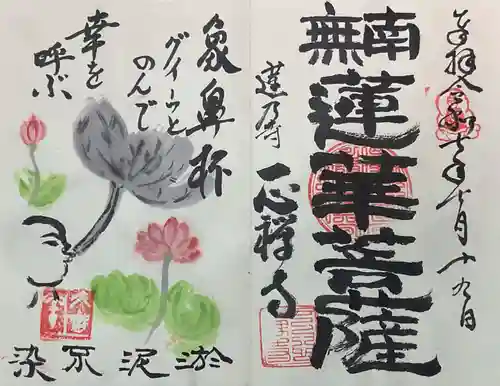 奉拝 令和七年七月十九日
南無蓮華菩薩
蓮乃寺 正禅寺
象鼻杯
グイーッと
のんで
幸を
呼ぶ
淤泥不染